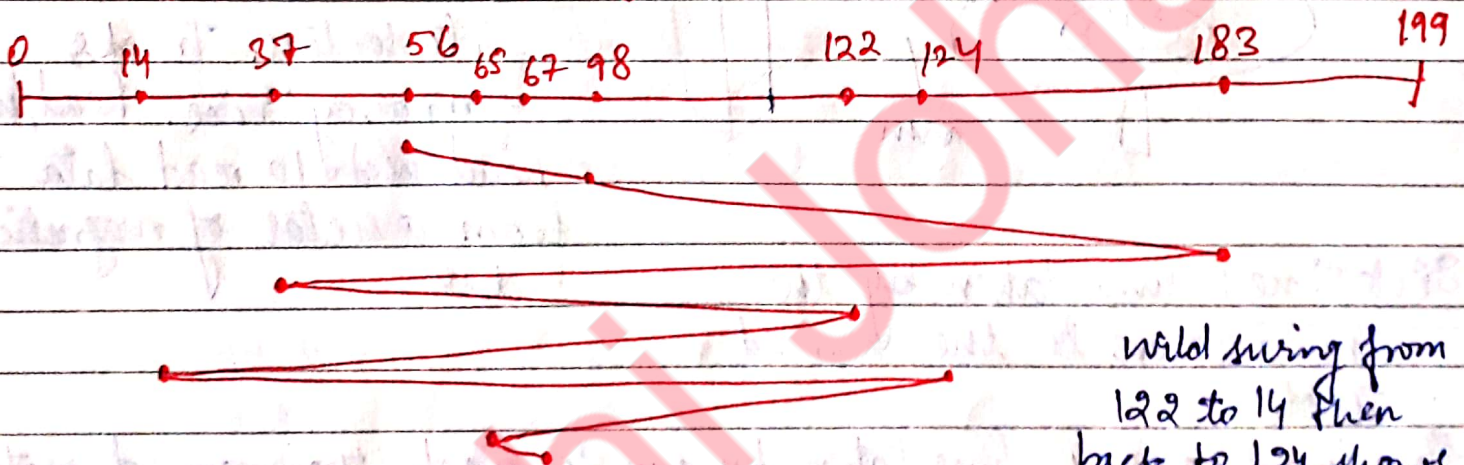 0 14 37 56 65 67 98 122 124 183 199
wild swing from
122 to 14 then
back to 124